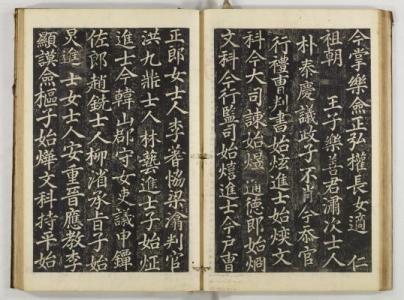 今掌樂僉正弘權長女適 仁
祖朝 王子樂善君潚次士人
朴泰慶議政子不肖今忝官
行禮曹判書始炫進士始煐文
科今大司諫始煜通德郎始烱
文科今行監司始熺進士今戶曹
正郎女士人李普恊梁瀹判官
洪九鼎士人林藝進士子始炡
進士今韓山郡守女史議申鏵
佐郎趙銑士人柳渻承旨子始
炅進士女士人安重晉應教李
顯謨僉樞子始燁文科持平始